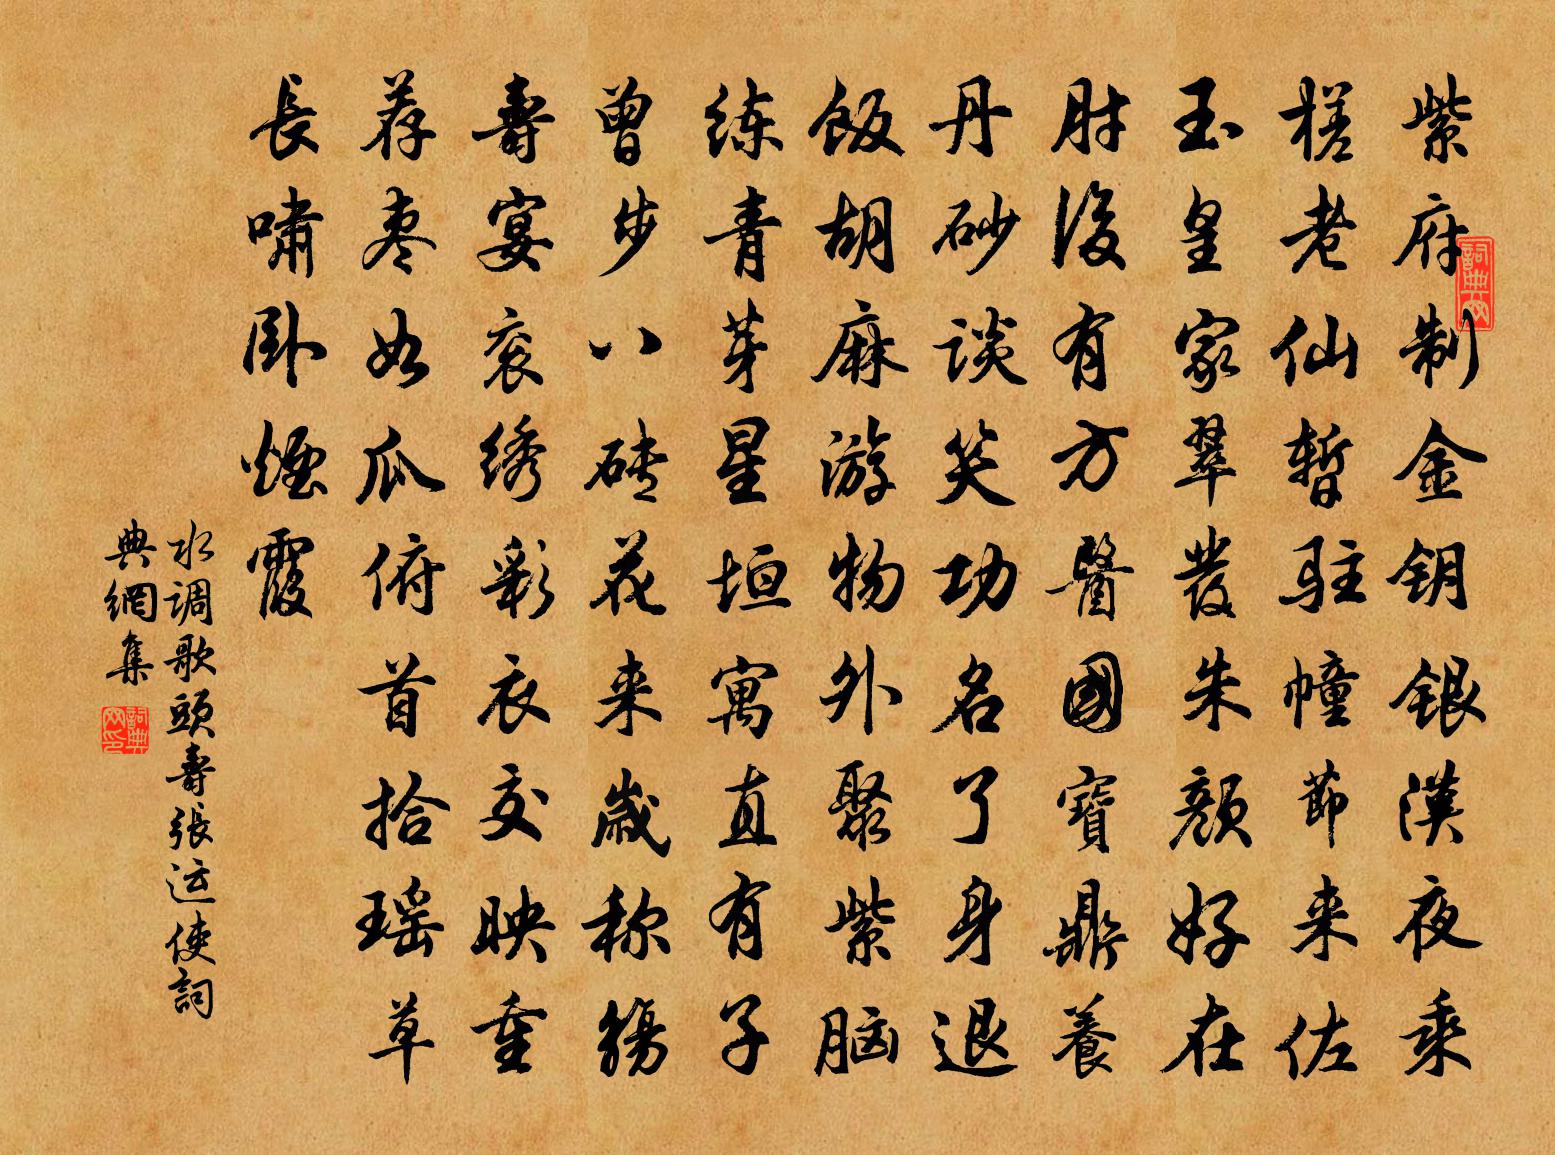 紫府制金钥银漢夜乘
槎老仙暫駐幢節来佐
玉皇家翠發朱颜好在
肘後有方醫國寶鼎養
丹砂談笑功名了身退
飯胡麻游物外聚紫脑
练青芽星垣寓直有子
曾步八砖花来歲称觞
壽宴衮绣彩衣交映重
荐枣如瓜俯首拾瑶草
長嘯卧煙霞
水调歌頭壽張运使詞
典網集
詞典网
詞典网印